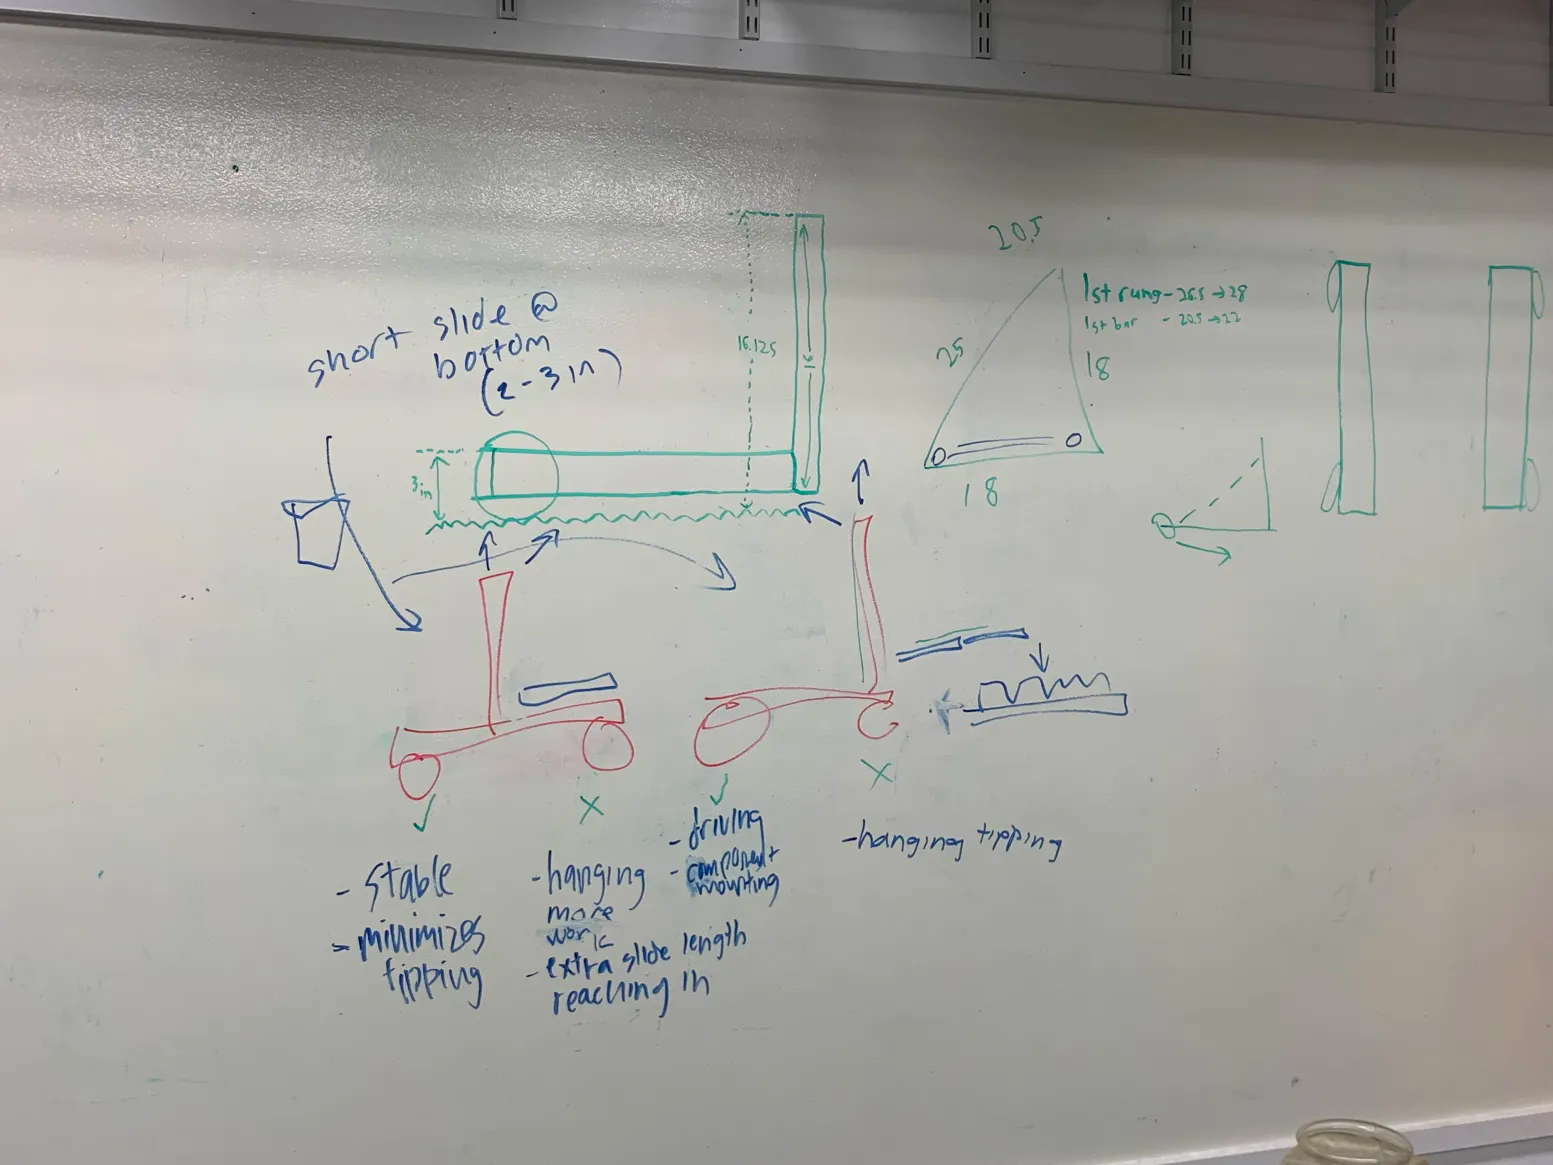 short slide @
bottom
(2-3in)
3in
16.125
20.5
25
18
18
1st rung - 26.5 → 28
1st bar - 20.5 → 22
✓
- stable
- minimizes
tipping
X
- hanging
more
work
- extra slide length
reaching in
✓
- driving
- component
mounting
X
- hanging tipping